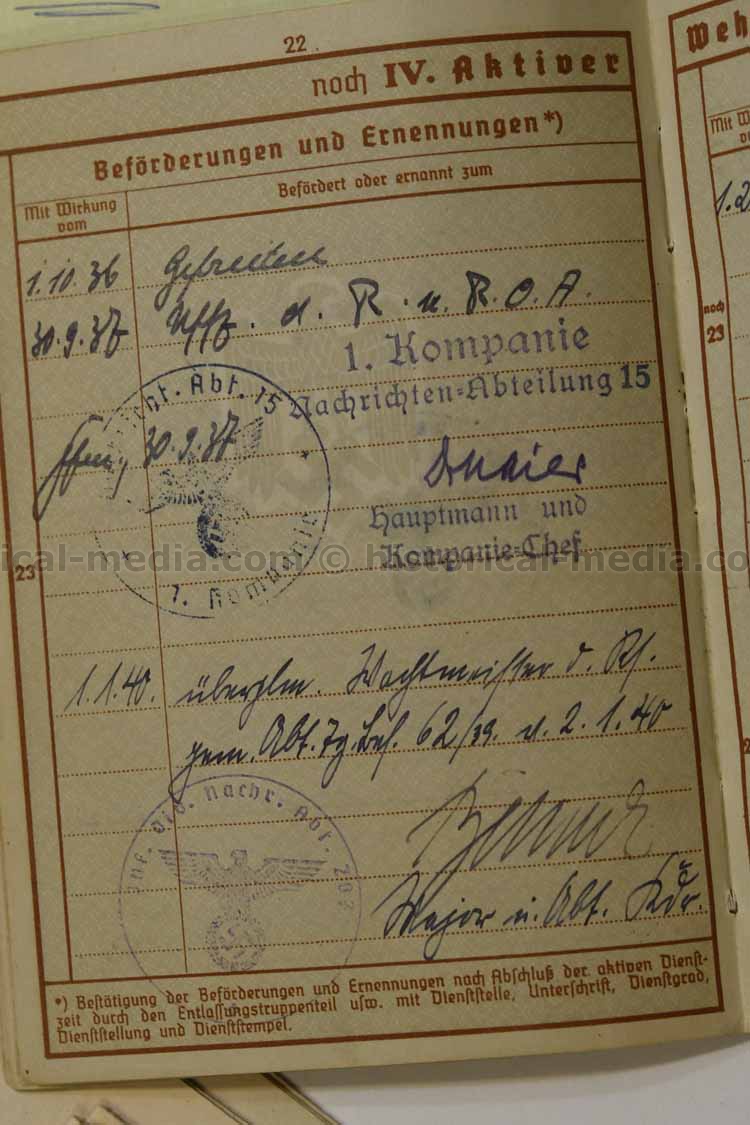 22
noch IV. Aktiver
Weh
Beförderungen und Ernennungen*)
Mit Wirkung
vom
Befördert oder ernannt zum
Mit W
1.10.36 Gefreiten
30.9.37 Uffz. d. R. u. R.O.A.
1. Kompanie
Nachrichten=Abteilung 15
nt. Abt. 15
30.9.37
Hauptmann und
Kompanie=Chef
1. Kompanie
ical-media.com © historical-media.co
23
noch
23
1.1.40. überzlm. Wachtmeister d. Rs.
gem. Abt. Tg. Bef. 62/39. v. 2.1.40
Inf. Div. Nachr. Abt.
Major u. Abt. Kdr.
*) Bestätigung der Beförderungen und Ernennungen nach Abschluß der aktiven Dienst-
zeit durch den Entlassungstruppenteil usw. mit Dienststelle, Unterschrift, Dienstgrad,
Dienststellung und Dienststempel.